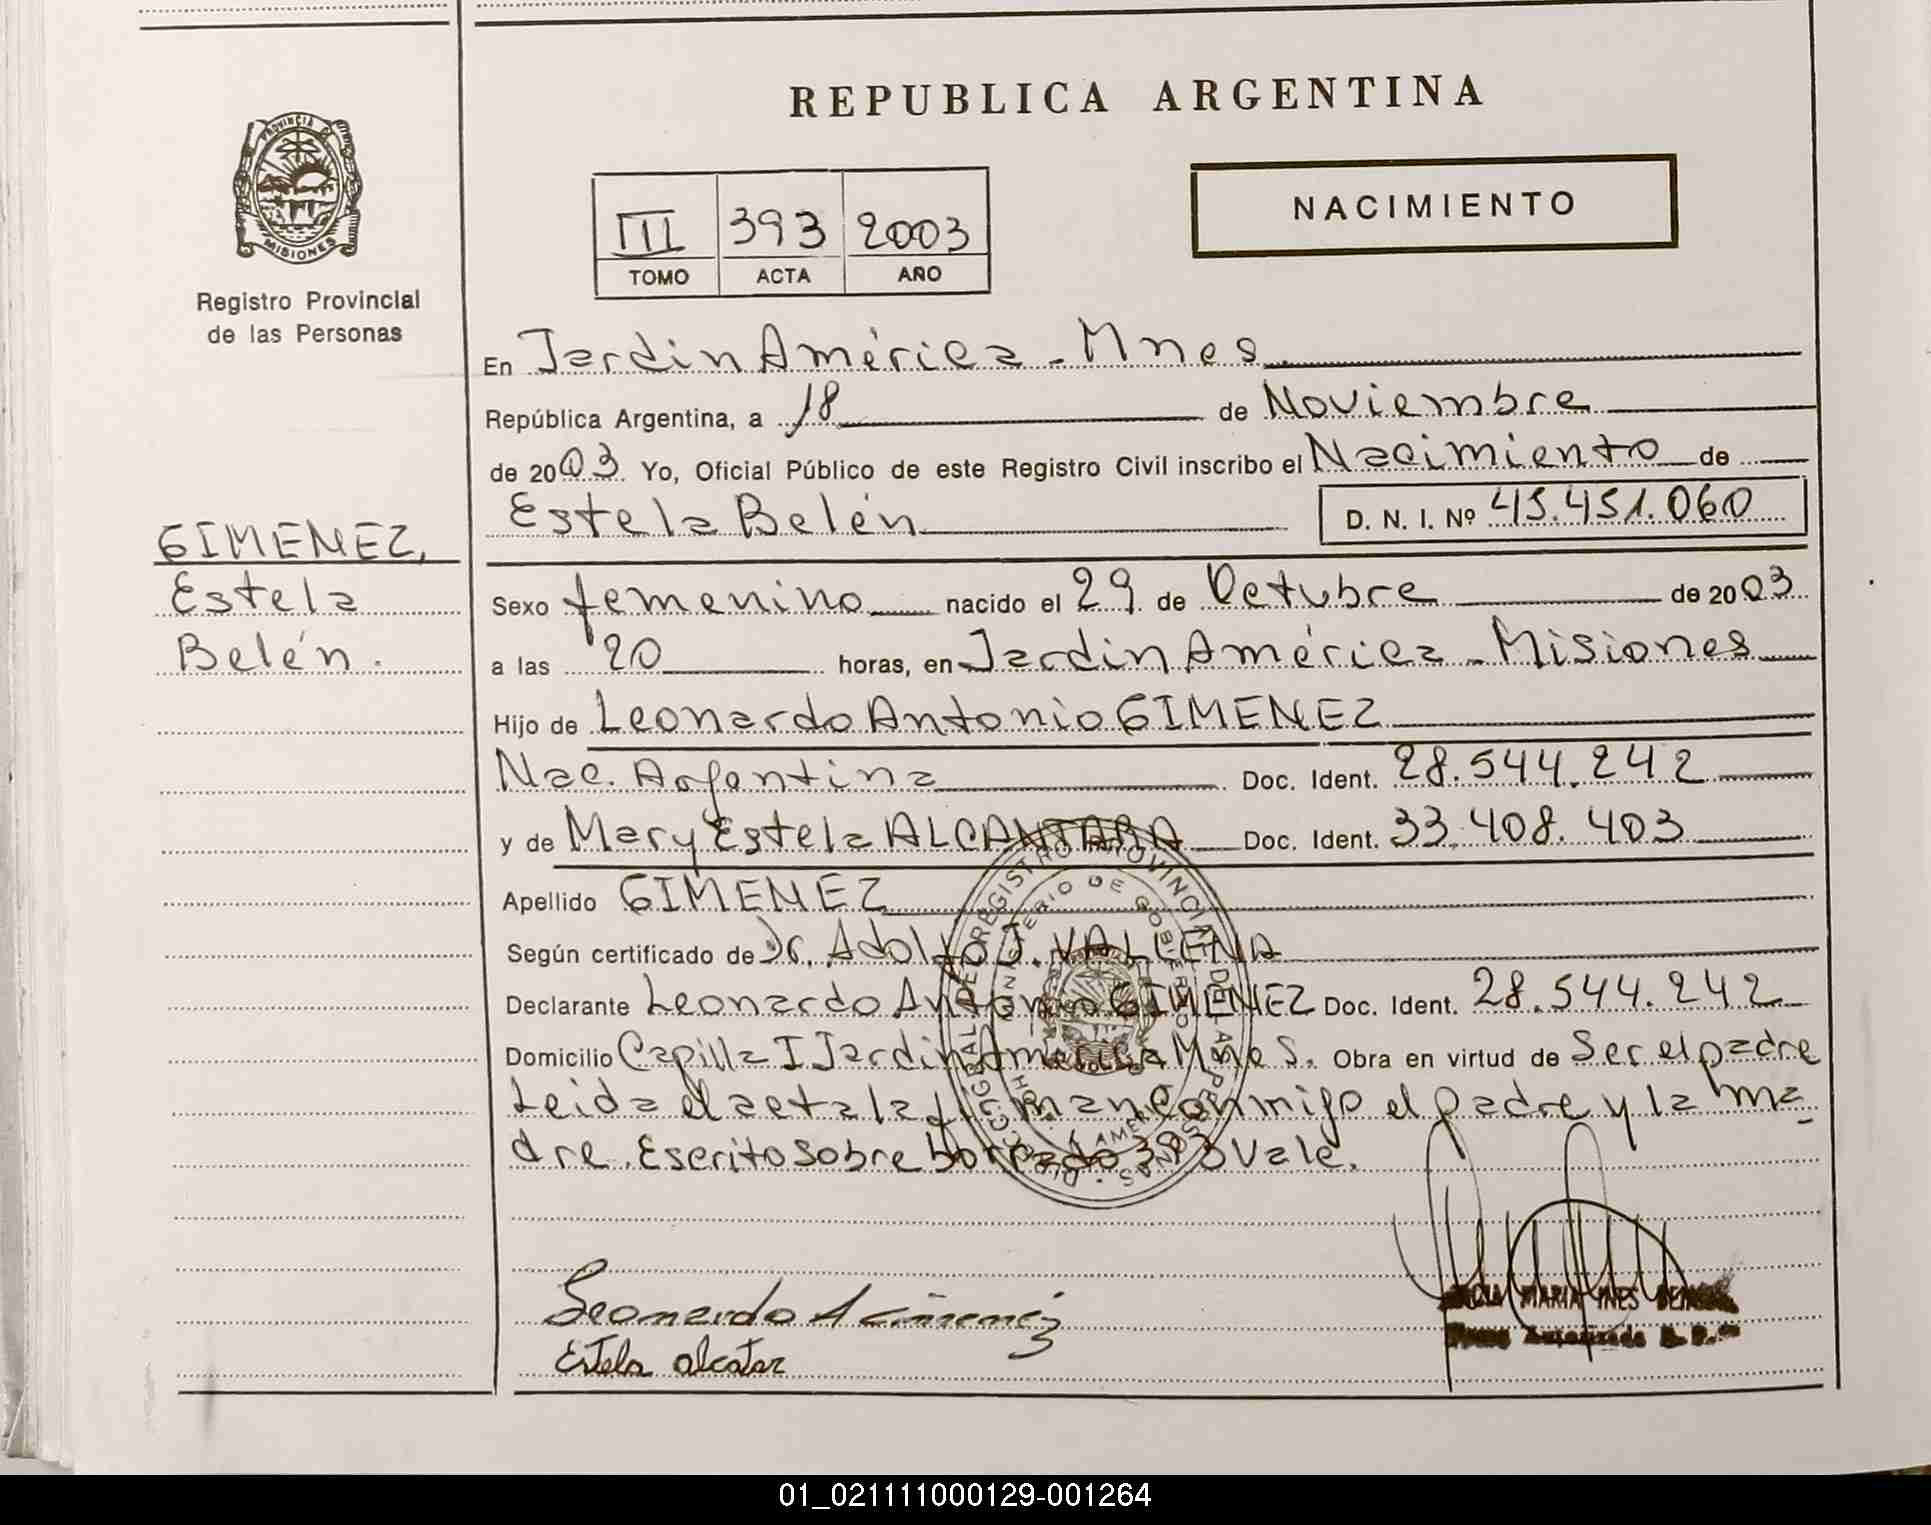 REPUBLICA ARGENTINA
PROVINCIA DE MISIONES
Registro Provincial
de las Personas
NACIMIENTO
III 393 2003
TOMO ACTA AÑO
En Jardin América - Mnes
República Argentina, a 18 de Noviembre
de 2003 Yo, Oficial Público de este Registro Civil inscribo el Nacimiento de
Estela Belén D. N. I. Nº 45.451.060
GIMENEZ,
Estela
Belén.
Sexo femenino nacido el 29 de Octubre de 2003
a las 20 horas, en Jardin América - Misiones
Hijo de Leonardo Antonio GIMENEZ
Nac. Argentina Doc. Ident. 28.544.242
y de Mary Estela ALCANTARA Doc. Ident. 33.408.403
Apellido GIMENEZ
Según certificado de Dr. Adolfo J. VALLENA
Declarante Leonardo Antonio GIMENEZ Doc. Ident. 28.544.242
Domicilio Capilla I Jardin America Mnes. Obra en virtud de Ser el padre
Leida el acta la firman conmigo el padre y la ma
dre. Escrito sobre borrado 393 Vale.
Leonardo A Gimenéz
Estela alcatar
MARIA INES
01_021111000129-001264